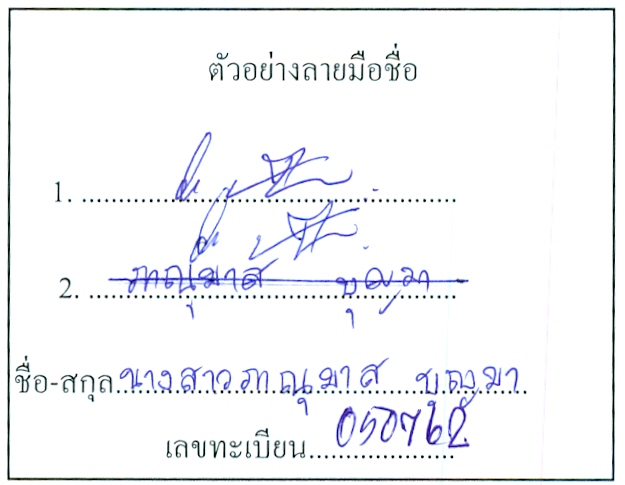 ตัวอย่างลายมือชื่อ
1.
2. ภาณุมาส บุญมา
ชื่อ-สกุล นางสาวภาณุมาส บุญมา
เลขทะเบียน 050762